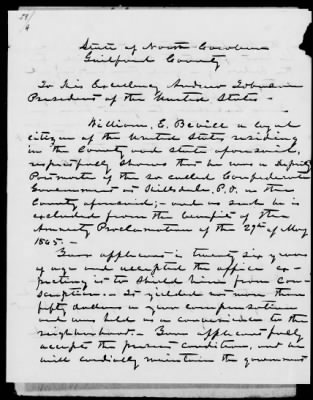 State of North Carolina
Guilford County
To His Excellency Andrew Johnson
President of the United States -
William. E. Bevill a loyal
citizen of the United States residing
in the County and state aforesaid,
respectfully shows that he was a Deputy
Postmaster of the so called Confederate
Government at Hillsdale, P.O. in the
County aforesaid; - and as such he is
excluded from the benefit of the
Amnesty Proclamation of the 29th of May
1865. -
Your applicant is twenty six years
of age and accepted the office ex-
pecting it to shield him from Con-
scription. - It yielded no more than
fifty dollars a year compensation
and was held as a convenience to the
neighborhood. - Your applicant fully
accepts the present condition, and he
will cordially maintain the government